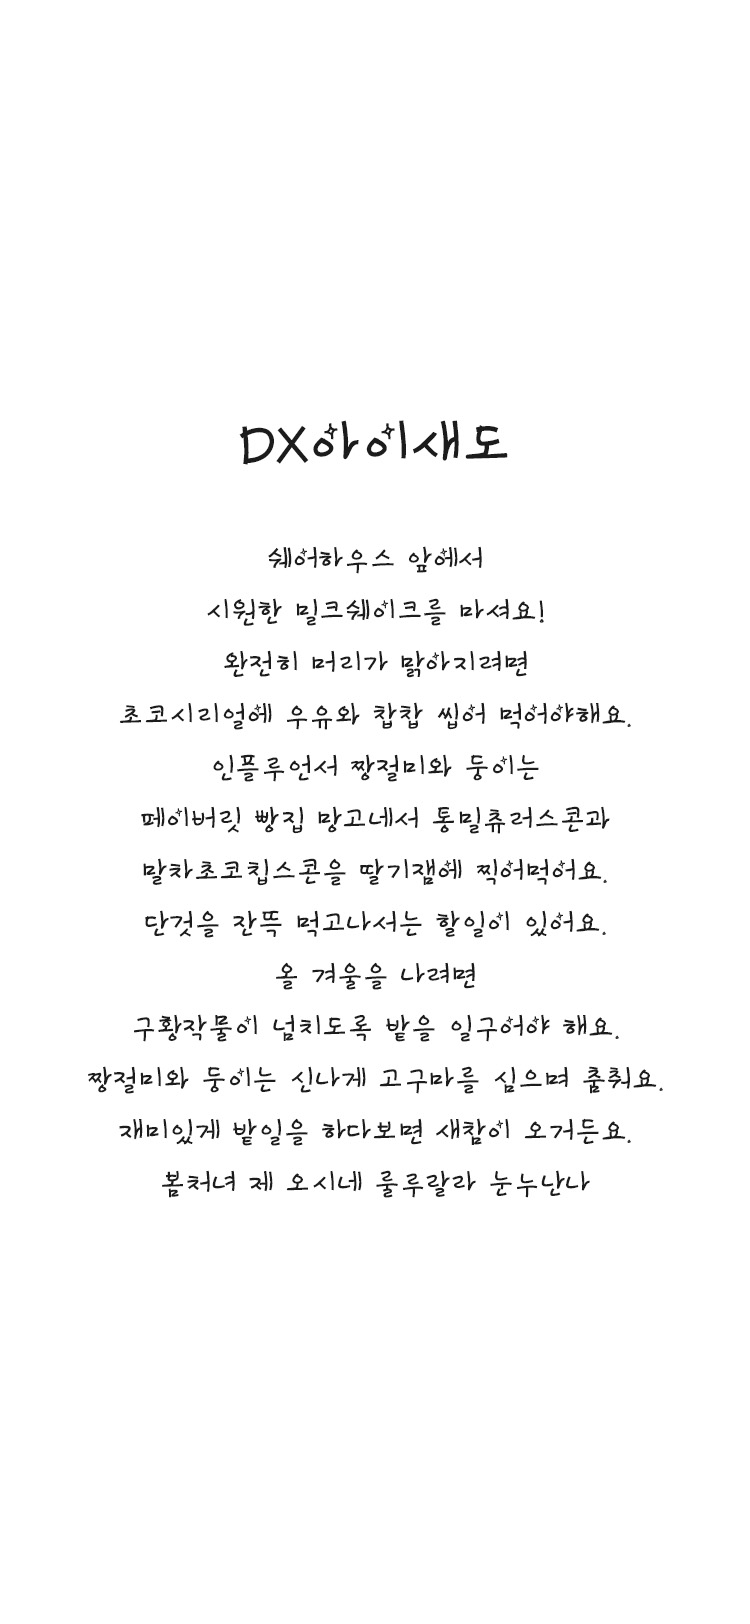 DX아이새도
쉐어하우스 앞에서
시원한 밀크쉐이크를 마셔요!
완전히 머리가 맑아지려면
초코시리얼에 우유와 찹찹 씹어 먹어야해요.
인플루언서 짱절미와 둥이는
페이버릿 빵집 망고네서 통밀츄러스콘과
말차초코칩스콘을 딸기잼에 찍어먹어요.
단것을 잔뜩 먹고나서는 할일이 있어요.
올 겨울을 나려면
구황작물이 넘치도록 밭을 일구어야 해요.
짱절미와 둥이는 신나게 고구마를 심으며 춤춰요.
재미있게 밭일을 하다보면 새참이 오거든요.
봄처녀 제 오시네 룰루랄라 눈누난나